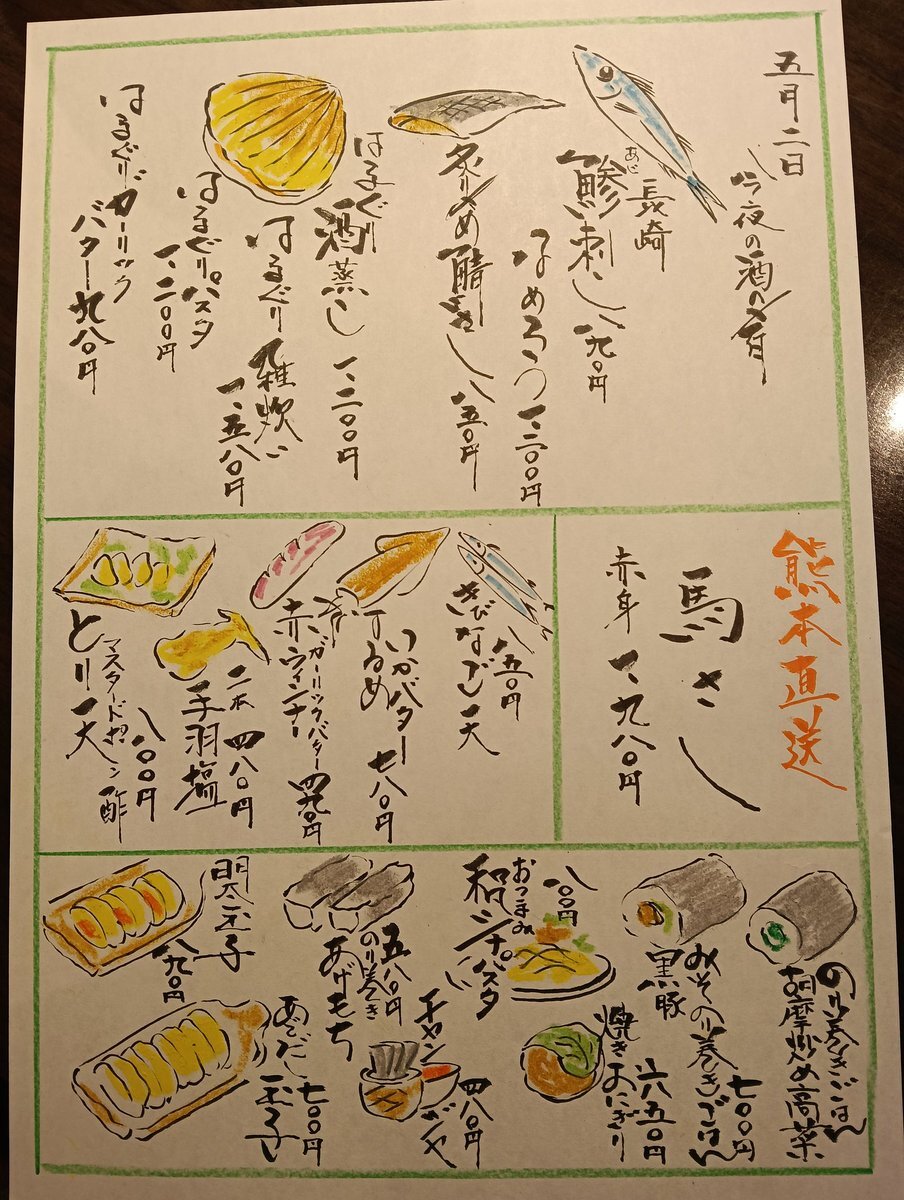 五月二日
今夜の酒の肴
長崎
あじ
鯵刺し 八九〇円
なめろう 一、二〇〇円
炙り〆め鯖さし 八五〇円
はまぐり
酒蒸し 一、二〇〇円
はまぐり雑炊い
一、五八〇円
はまぐりパスタ
一、二〇〇円
はまぐりガーリック
バター 九八〇円
熊本直送
馬さし
赤身 一、九八〇円
八五〇円
きびなご天
いかバター 七八〇円
するめ
ガーリックバター 四九〇円
赤ウインナー
二本 四八〇円
手羽塩
八〇〇円
マスタードポン酢
とり天
のり巻きごはん
胡麻炒め高菜
七〇〇円
みそのり巻きごはん
黒豚
六五〇円
焼きおにぎり
八〇〇円
おつまみ
パスタ
四八〇円
チャンジャ
五八〇円
のり巻き
あげもち
明太玉子
八九〇円
七〇〇円
あごだし玉子